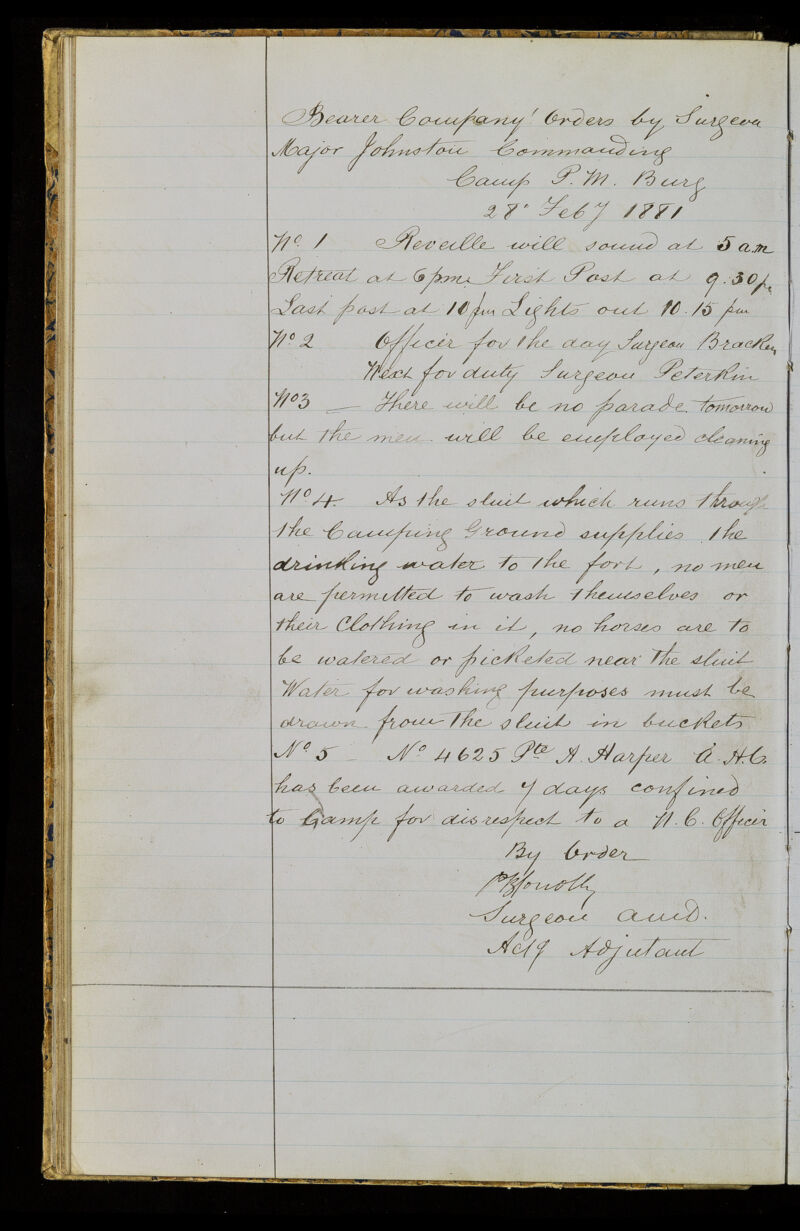 Bearer Company' Orders by Surgeon
Major Johnston Commanding
Camp P. M. Burg
28" Feby 1881
No. 1 Reveille will sound at 5 a.m
Retreat at 6 pm. First Post at 9.30 p.
Last post at 10 pm Lights out 10.15 pm
No 2 Officer for the day Surgeon Bracken
Next for duty Surgeon Peterkin
No 3 — There will be no parade tomorrow
but the men will be employed cleaning
up.
No 4. As the sluit which runs through
the Camping Ground supplies the
drinking water to the fort, no men
are permitted to wash themselves or
their Clothing in it, no horses are to
be watered or picketed near the sluit
Water for washing purposes must be
drawn from the sluit in buckets
No 5 — No 4625 Pte A. Harper A.H.C.
has been awarded 7 days confined
to Camp for disrespect to a N. C. Officer
By Order
Surgeon AMD.
Actg Adjutant